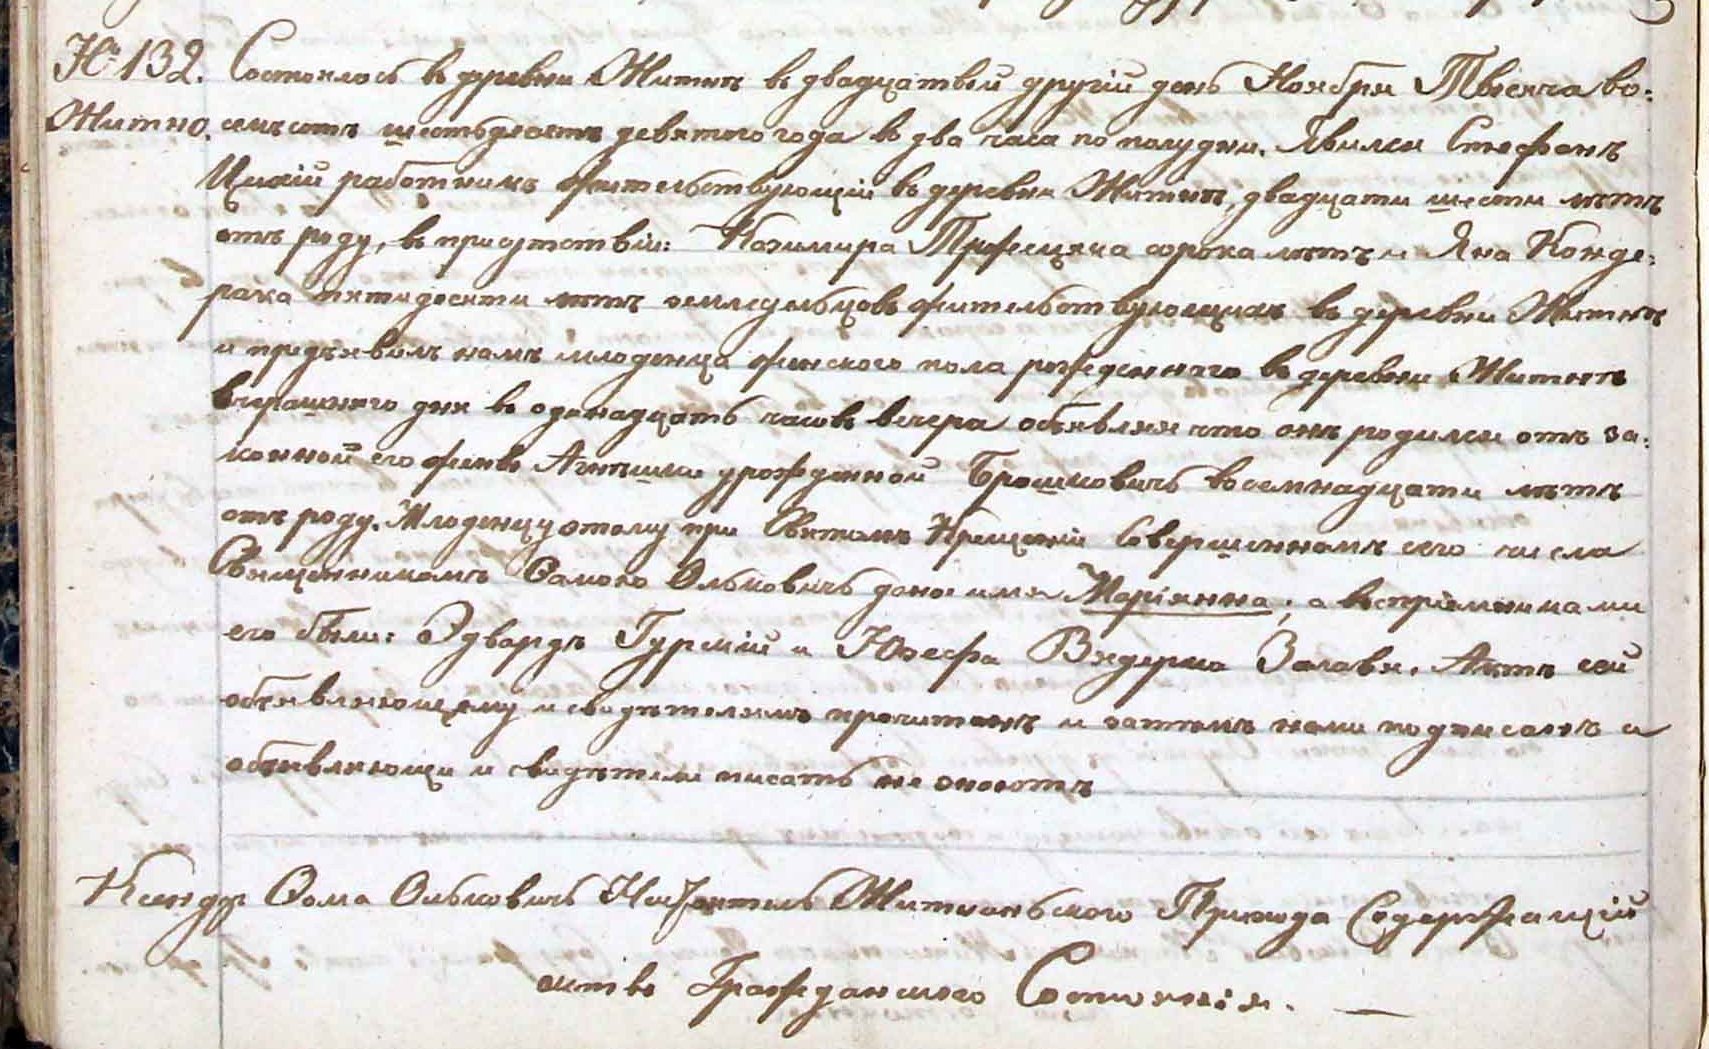 № 132. Состоялось въ деревни Житнѣ въ двадцатый другій день Ноября Тысяча во=
Житно. семьсотъ шестьдесятъ девятого года въ два часа по полудни. Явился Стефанъ
работникъ жительствующій въ деревни Житнѣ, двадцати шести лѣтъ
отъ роду, въ присутствіи: Казимира сорока лѣтъ и Яна Конде=
рака пятидесяти лѣтъ земледѣльцовъ жительствующихъ въ деревни Житнѣ
и предъявилъ намъ младенца женского пола рожденнаго въ деревни Житнѣ
вчерашняго дня въ одинадцать часовъ вечера объявляя что онъ родился отъ за=
конной его жены Агнѣшки урожденной Брошковичъ восемнадцати лѣтъ
отъ роду. Младенцу этому при Святомъ Крещеніи совершенномъ сего числа
Священникомъ Ѳомою Ольковичъ дано имя Маріянна, а воспріемниками
его были: Эдвардъ Гурскій и Юзефа Актъ сей
объявляющему и свидѣтелямъ прочитанъ и затѣмъ нами подписанъ а
объявляющи и свидѣтели писать не знаютъ
Ксендзъ Ѳома Олькович Настоятель Житнаньского Прихода Содержащій
актъ Гражданского Состоянія. —